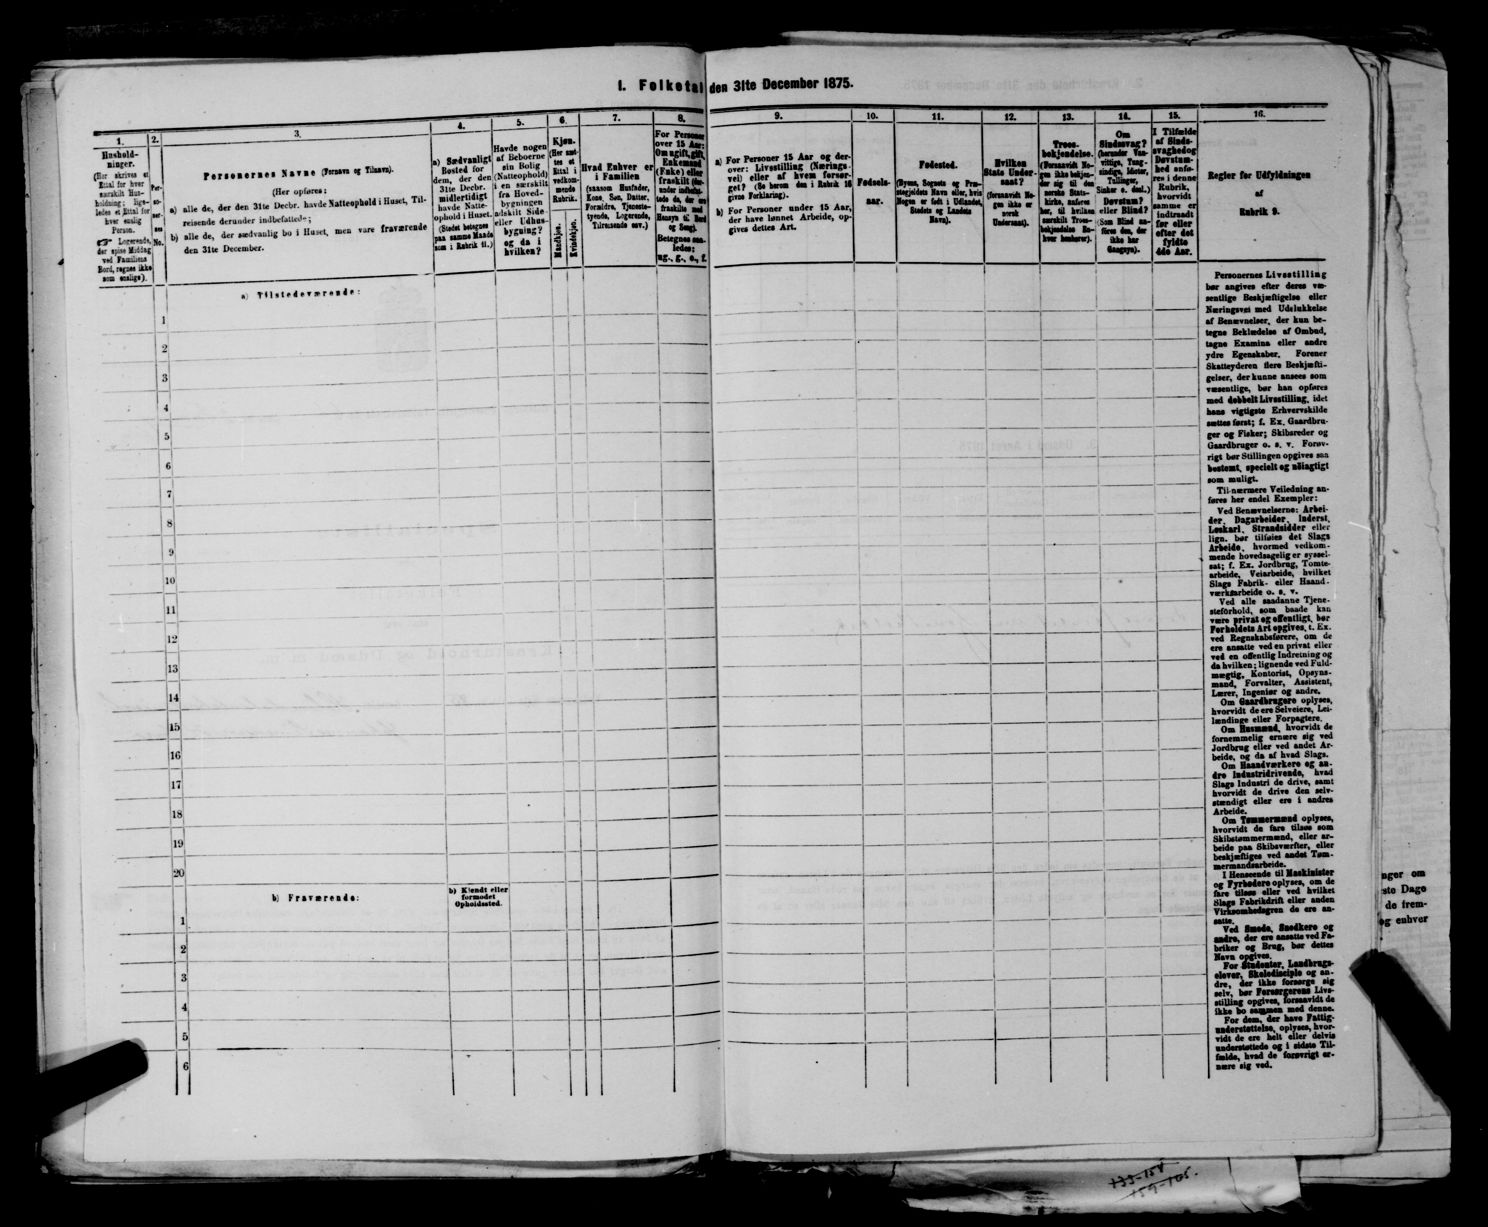 1. Folketal den 31te December 1875.
1.
Hushold-
ninger.
(Her skrives et
Ettal for hver
særskilt Hus-
holdning; lige-
ledes et Ettal for
hver enslig
Person.
☞ Logerende,
der spise Middag
ved Familiens
Bord, regnes ikke
som enslige).
2.
Per-
so-
ner-
No.
3.
Personernes Navne (Fornavn og Tilnavn).
(Her opføres:
a) alle de, der den 31te Decbr. havde Natteophold i Huset, Til-
reisende derunder indbefattede;
b) alle de, der sædvanlig bo i Huset, men vare fraværende
den 31te December.
4.
a) Sædvanligt
Bosted for
dem, der den
31te Decbr.
midlertidigt
havde Natte-
ophold i Huset.
(Stedet betegnes
paa samme Maade
som i Rubrik 11.)
5.
Havde nogen
af Beboerne
sin Bolig
(Natteophold)
i en særskilt
fra Hoved-
bygningen
adskilt Side-
eller Udhus-
bygning?
og da i
hvilken?
6.
Kjøn.
(Her sæt-
tes et
Ettal i
vedkom-
mende
Rubrik.
Mandkjøn.
Kvindekjøn.
7.
Hvad Enhver er
i Familien
(saasom Husfader,
Kone, Søn, Datter,
Forældre, Tjeneste-
tyende, Logerende,
Tilreisende osv.)
8.
For Personer
over 15 Aar:
Om ugift, gift,
Enkemand
(Enke) eller
fraskilt (der-
under indbefat-
tede de, der ere
fraskilte med
Hensyn til Bord
og Seng).
Betegnes saa-
ledes:
ug., g., e., f.
9.
a) For Personer 15 Aar og der-
over: Livsstilling (Nærings-
vei) eller af hvem forsør-
get? (Se herom den i Rubrik 16
givne Forklaring).
b) For Personer under 15 Aar,
der have lønnet Arbeide, op-
gives dettes Art.
10.
Fødsels-
aar.
11.
Fødested.
(Byens, Sognets og Præ-
stegjeldets Navn eller, hvis
Nogen er født i Udlandet,
Stedets og Landets
Navn).
12.
Hvilken
Stats Under-
saat?
(forsaavidt No-
gen ikke er
norsk
Undersaat).
13.
Troes-
bekjendelse.
(Forsaavidt No-
gen ikke bekjen-
der sig til den
norske Stats-
kirke, anføres
her, til hvilken
særskilt Troes-
bekjendelse En-
hver henhører).
14.
Om
Sindssvag?
(herunder Van-
vittige, Tung-
sindige, Idioter,
Tullinger,
Sinker o. desl.)
Døvstum?
eller Blind?
(Som Blind an-
føres den, der
ikke har
Gangsyn).
15.
I Tilfælde
af Sinds-
svaghed og
Døvstum-
hed anfø-
res i denne
Rubrik,
hvorvidt
samme er
indtraadt
før eller
efter det
fyldte
4de Aar.
16.
Regler for Udfyldningen
af
Rubrik 9.
a) Tilstedeværende:
1
2
3
4
5
6
7
8
9
10
11
12
13
14
15
16
17
18
19
20
b) Fraværende:
b) Kjendt eller
formodet
Opholdssted.
1
2
3
4
5
6
Personernes Livsstilling
bør angives efter deres væ-
sentlige Beskjæftigelse eller
Næringsvei med Udelukkelse
af Benævnelser, der kun be-
tegne Beklædelse af Ombud,
tagne Examina eller andre
ydre Egenskaber. Forener
Skatteyderen flere Beskjæfti-
gelser, der kunne ansees som
væsentlige, bør han opføres
med dobbelt Livsstilling, idet
hans vigtigste Erhvervskilde
sættes først; f. Ex. Gaardbru-
ger og Fisker; Skibsreder og
Gaardbruger o. s. v. Forøv-
rigt bør Stillingen opgives saa
bestemt, specielt og nöiagtigt
som muligt.
Til nærmere Veiledning an-
føres her endel Exempler:
Ved Benævnelserne: Arbei-
der, Dagarbeider, Inderst,
Løskarl, Strandsidder eller
lign. bør tilføies det Slags
Arbeide, hvormed vedkom-
mende hovedsagelig er syssel-
sat; f. Ex. Jordbrug, Tomte-
arbeide, Veiarbeide, hvilket
Slags Fabrik- eller Haand-
værksarbeide o. s. v.
Ved alle saadanne Tjene-
steforhold, som baade kan
være privat og offentligt, bør
Forholdets Art opgives, t. Ex.
ved Regnskabsførere, om de
ere ansatte ved en privat eller
ved en offentlig Indretning og
da hvilken; lignende ved Fuld-
mægtig, Kontorist, Opsyns-
mand, Forvalter, Assistent,
Lærer, Ingeniør og andre.
Om Gaardbrugere oplyses,
hvorvidt de ere Selveiere, Lei-
lændinge eller Forpagtere.
Om Husmænd, hvorvidt de
fornemmelig ernære sig ved
Jordbrug eller ved andet Ar-
beide, og da af hvad Slags.
Om Haandværkere og an-
dre Industridrivende, hvad
Slags Industri de drive, samt
hvorvidt de drive den selv-
stændigt eller ere i andres
Arbeide.
Om Tømmermænd oplyses,
hvorvidt de fare tilsøs som
Skibstømmermænd, eller ar-
beide paa Skibsværfter, eller
beskjæftiges ved andet Tøm-
mermandsarbeide.
I Henseende til Maskinister
og Fyrbødere oplyses, om de
fare tilsøs eller ved hvilket
Slags Fabrikdrift eller anden
Virksomhedsgren de ere an-
satte.
Ved Smede, Snedkere og
andre, der ere ansatte ved Fa-
briker og Brug, bør dettes
Navn opgives.
For Studenter, Landbrugs-
elever, Skoledisciple og an-
dre, der ikke forsørge sig
selv, bør Forsørgerens Livs-
stilling opgives, forsaavidt de
ikke bo sammen med denne.
For dem, der have Fattig-
understøttelse, oplyses, hvor-
vidt de ere helt eller delvis
understøttede og i sidste Til-
fælde, hvad de forøvrigt er-
nære sig ved.
nger om
ste Dage
de frem-
og enhver
133-158
159-165.